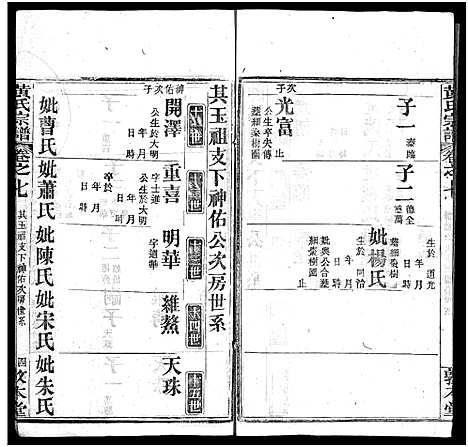 黃氏宗譜 卷之七
次子
光富
公生卒失傳
葬細染樹園
止
子一
泰臨
子二
德全
德萬
生於道光
年 月
日 時
卒於
年 月
日 時
葬細染樹
妣楊氏
生於同治
年 月
日 時
妣與公合葬
細染樹園
止
敦本堂
其玉祖支下神佑公次房世系
十一世
十二世
十三世
十四世
十五世
神佑次子
開澤
公生於大明
年 月
日 時
重喜
字士達
公生於大明
年 月
日 時
卒於
年 月
日 時
明華
字迺華
維鰲
天珠
妣曹氏
妣蕭氏
妣陳氏
妣宋氏
妣朱氏
黃氏宗譜 卷之七
其玉祖支下神佑次房世系
四
敦本堂